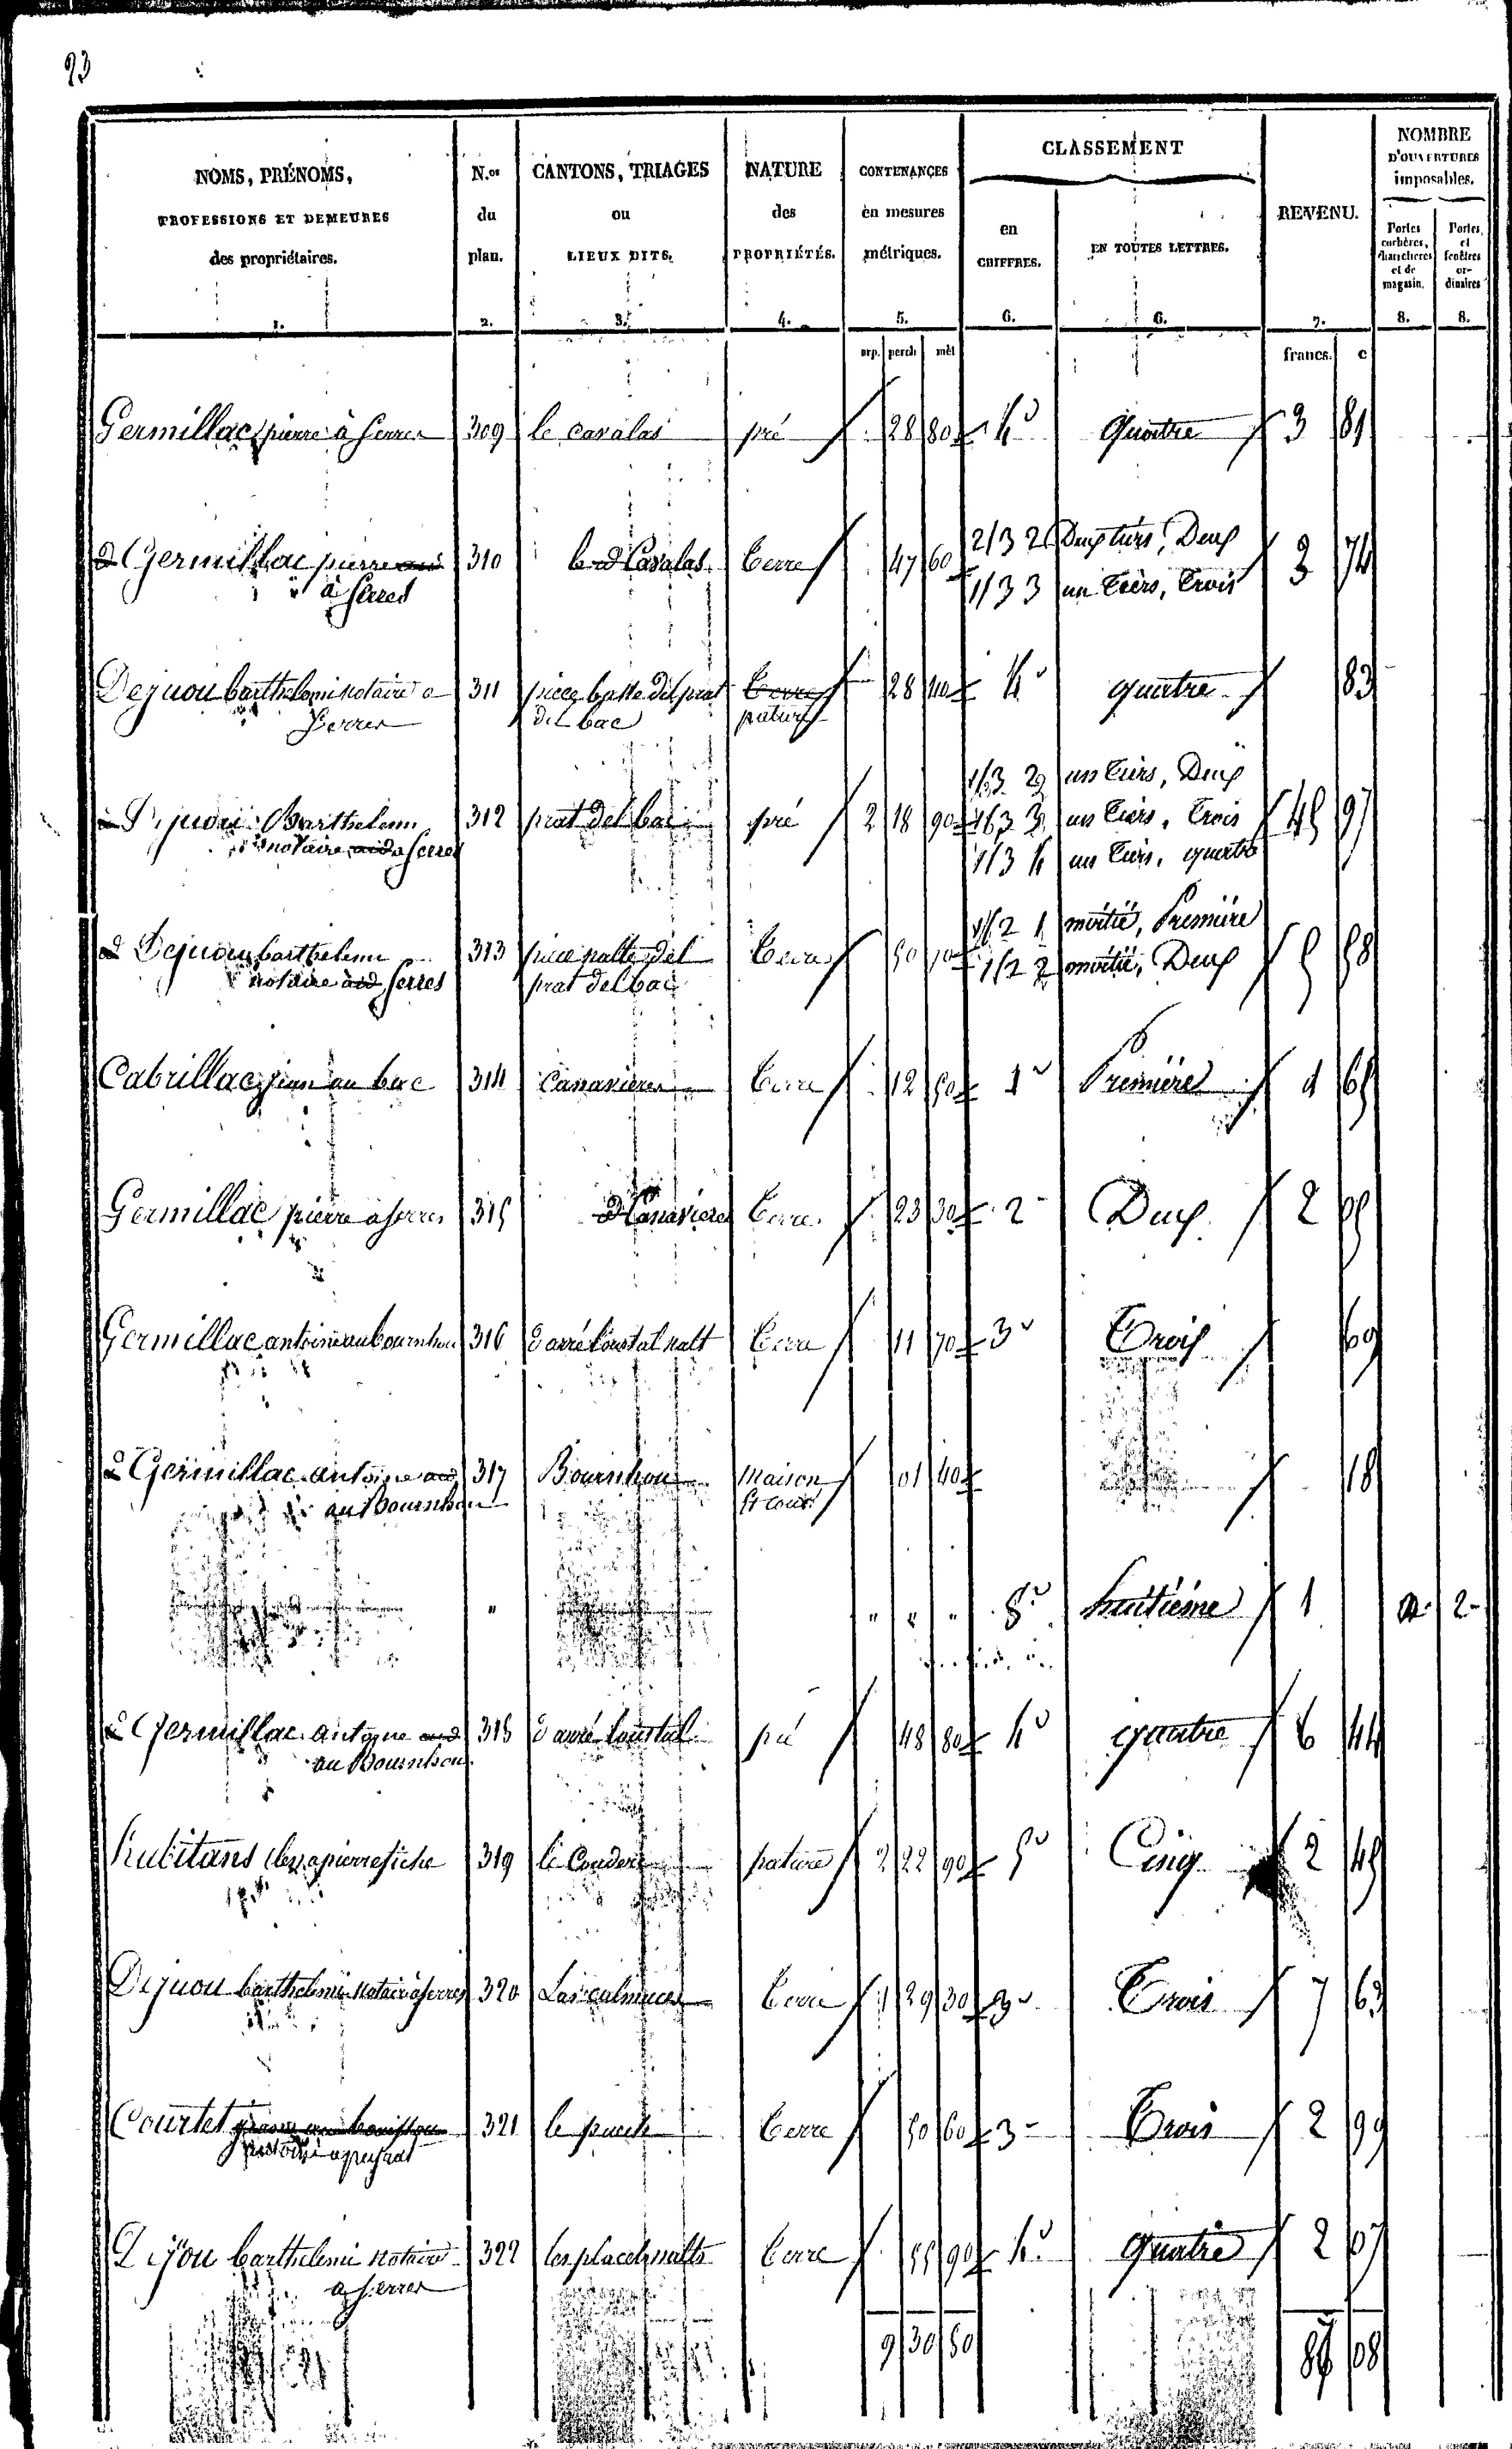 93
NOMS, PRÉNOMS, PROFESSIONS ET DEMEURES des propriétaires. 1.
N.os du plan. 2.
CANTONS, TRIAGES ou LIEUX DITS. 3.
NATURE des PROPRIÉTÉS. 4.
CONTENANCES en mesures métriques. 5.
CLASSEMENT
en CHIFFRES. 6.
EN TOUTES LETTRES. 6.
REVENU. 7.
NOMBRE D'OUVERTURES imposables.
Portes cochères, charretières et de magasin. 8.
Portes et fenêtres ordinaires 8.
arp. perch mèt francs. c
Germillac pierre à serres 309 le cavalas pré 28 80 4e Quatre 3 81
d Germillac pierre 310 le d Cavalas terre 47 60 2/3 2 Deux tiers, Deux 3 74
à serres 1/3 3 un tiers, trois
Dejuou barthelemi notaire a 311 piece basse del prat terre 28 40 4e quatre 83
serres del bac pature
Dejuou Barthelemi 312 prat del bac pré 2 18 90 1/3 2 un tiers, Deux 45 97
notaire a serres 1/3 3 un tiers, trois
1/3 4 un tiers, quatre
d Dejuou barthelemi 313 piece nalte del terre 50 1/2 1 moitié, Première 5 58
notaire serres prat del bac 1/2 2 moitié, Deux
Cabrillac jean au bac 314 Canavieres terre 12 50 1e Première 1 65
Germillac pierre a serres 315 d Canavieres terre 23 30 2 Deux 2
Germillac antoine au bournhou 316 darré loustal nalt terre 11 70 3e Trois 69
d Germillac antoine 317 Bournhou Maison 01 40 18
au Bournhou et cour
" " " " 8e huitième 1 2
d Germillac antoine 318 darré loustal pré 48 80 4e quatre 6 44
au Bournhou
habitans de pierrefiche 319 le Couderc pature 2 22 90 5e Cinq 2 45
Dejuou barthelemi notaire à serres 320 terre 1 29 30 3e Trois 7 63
Courtet 321 le puech terre 50 60 3 Trois 2 99
Dejou barthelemi notaire 322 les placels nalts terre 55 90 4e Quatre 2 07
a serres
9 30 50 08